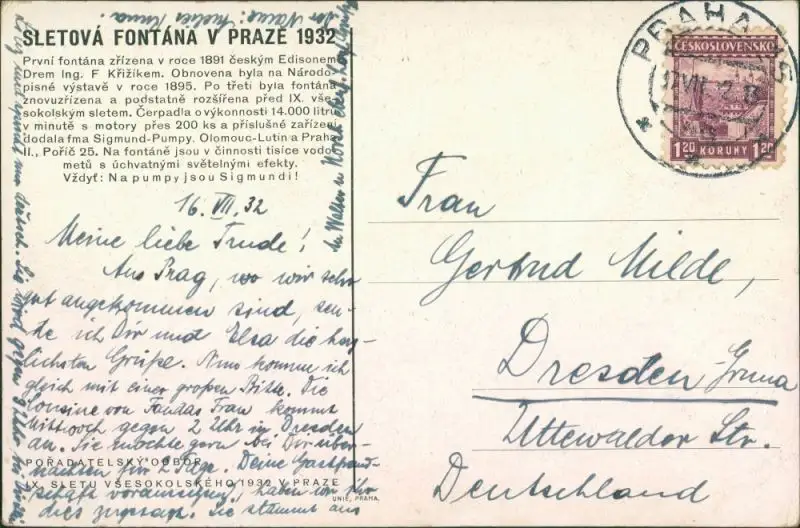 SLETOVÁ FONTÁNA V PRAZE 1932
První fontána zřízena v roce 1891 českým Edisonem
Drem Ing. F Křižíkem. Obnovena byla na Národo-
pisné výstavě v roce 1895. Po třetí byla fontána
znovuzřízena a podstatně rozšířena před IX. vše-
sokolským sletem. Čerpadla o výkonnosti 14.000 litrů
v minutě s motory přes 200 ks a příslušné zařízení
dodala fma Sigmund-Pumpy. Olomouc-Lutín a Praha
II., Poříč 25. Na fontáně jsou v činnosti tisíce vodo-
metů s úchvatnými světelnými efekty.
Vždyť: Na pumpy jsou Sigmundi!
16. VII. 32
Meine liebe Trude!
Aus Prag, wo wir sehr
gut angekommen sind, sen-
de ich Dir und Elsa die herz-
lichsten Grüße. Nun komme ich
gleich mit einer großen Bitte. Die
Cousine von Fran kommt
Mittwoch gegen 2 Uhr in Dresden
an. Sie möchte gern bei Dir über-
nachten für 2 Tage. Deine Gastfreund-
schaft voraussetzend, haben wir ihr
dies zugesagt. Sie stammt aus
POŘADATELSKÝ ODBOR
IX. SLETU VŠESOKOLSKÉHO 1932 V PRAZE
UNIE, PRAHA.
Name:
deutsch. Sie wird gegen
PRAHA
ČESKOSLOVENSKO
1.20 KORUNY 1.20
Frau
Gertrud Milde,
Dresden-Gruna
Uttewalder Str.
Deutschland